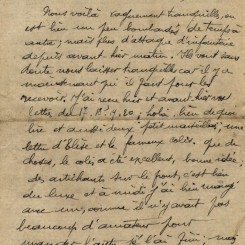 Nous voilà vaguement tranquille, on
est bien un peu bombardés de temps à
autre, mais plus d'attaque d'infanterie
depuis avant hier matin. Ils vont sans
doute nous laisser tranquilles car il y a
maintenant qui il faut pour les
recevoir. J'ai reçu hier et avant hier vos
lettres du 17. 18. 19. 20; de
et aussi deux petit
lettre d'Elise et le fameux colis. que de
choses, le colis a été excellent, bonne idée,
de, artichauts sur le pont, c'est bien
du luxe et à midi j'ai bien mangé
avec un, comme il n'y avait pas
beaucoup d'amateur pour
manger l'autre je l'ai fini; mes